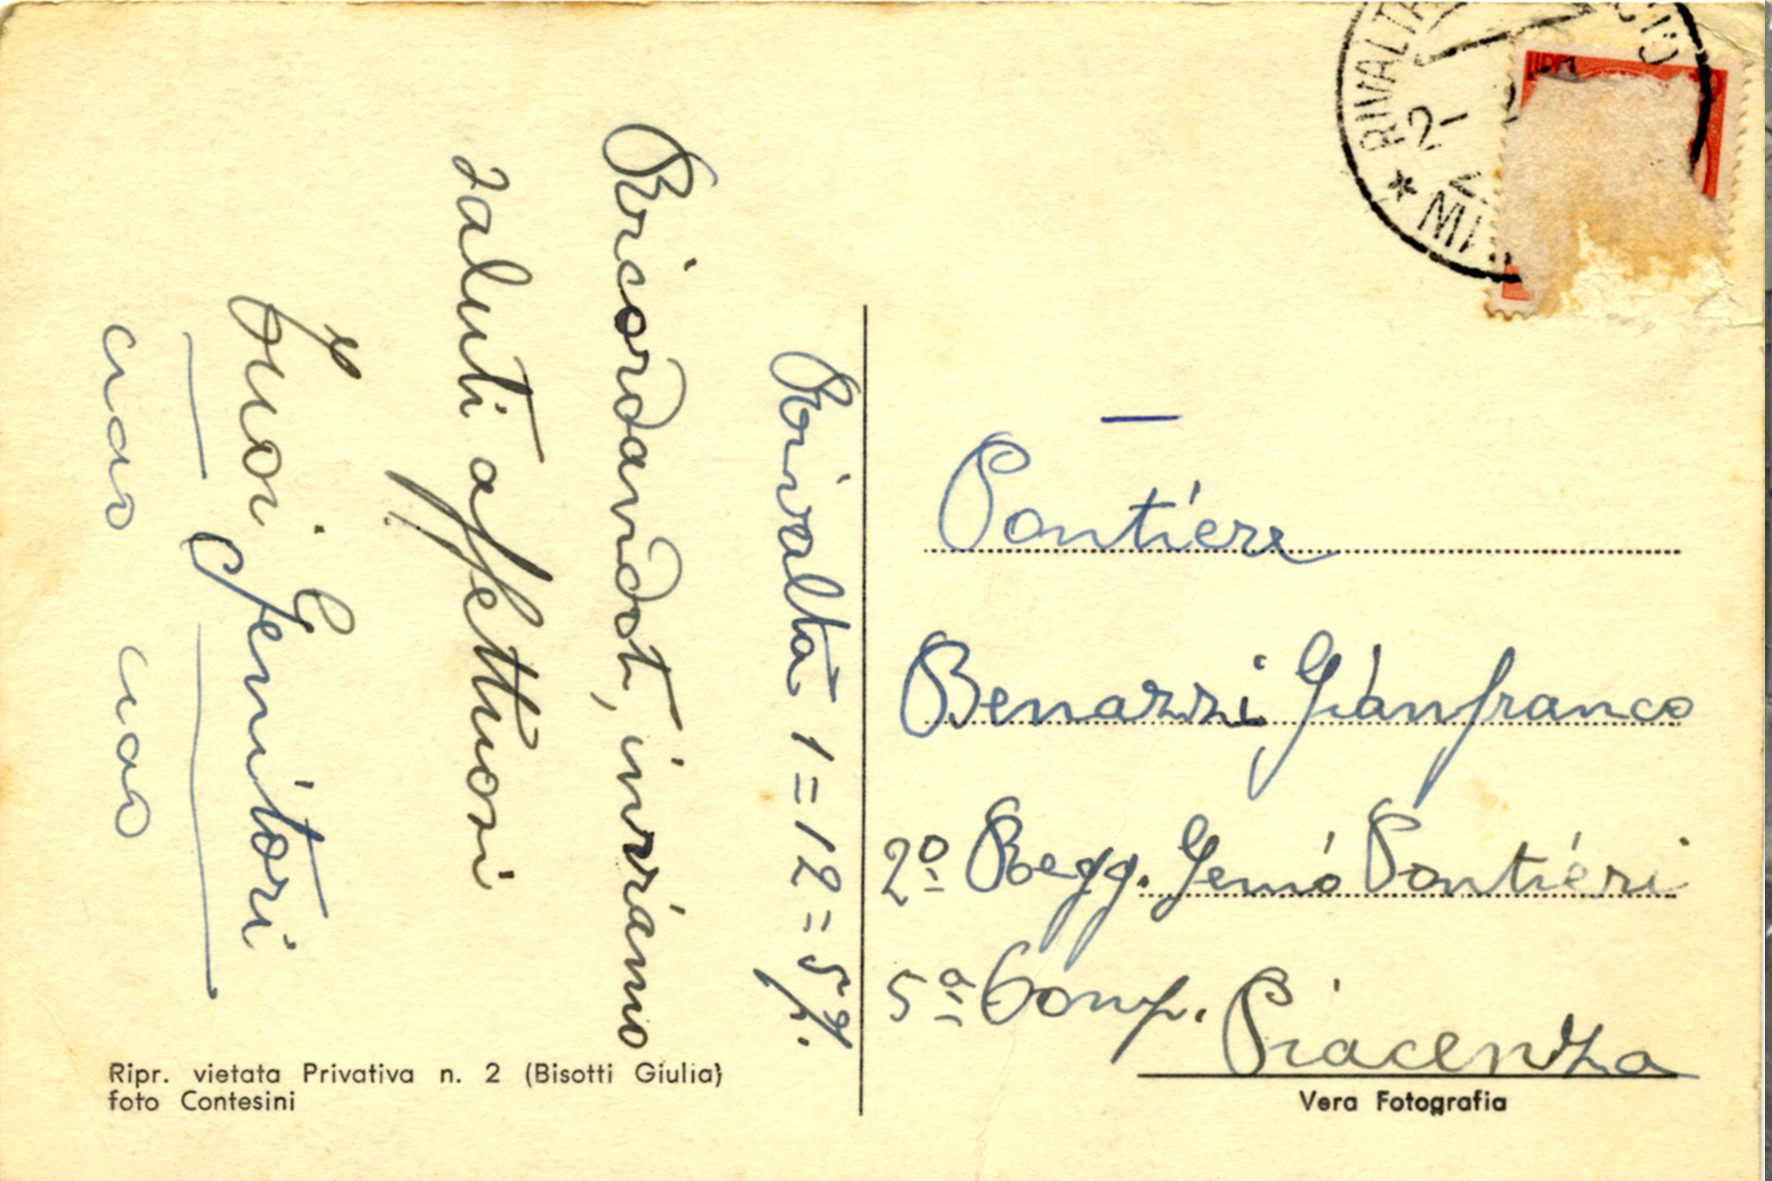 Rivalta 1=12=59.
Ricordandoti, inviamo
saluti affettuosi
Tuoi Genitori
ciao ciao
Pontiere
Benazzi Gianfranco
2º Regg. Genió Pontiéri
5ª Comp. Piacenza
Ripr. vietata Privativa n. 2 (Bisotti Giulia)
foto Contesini
Vera Fotografia